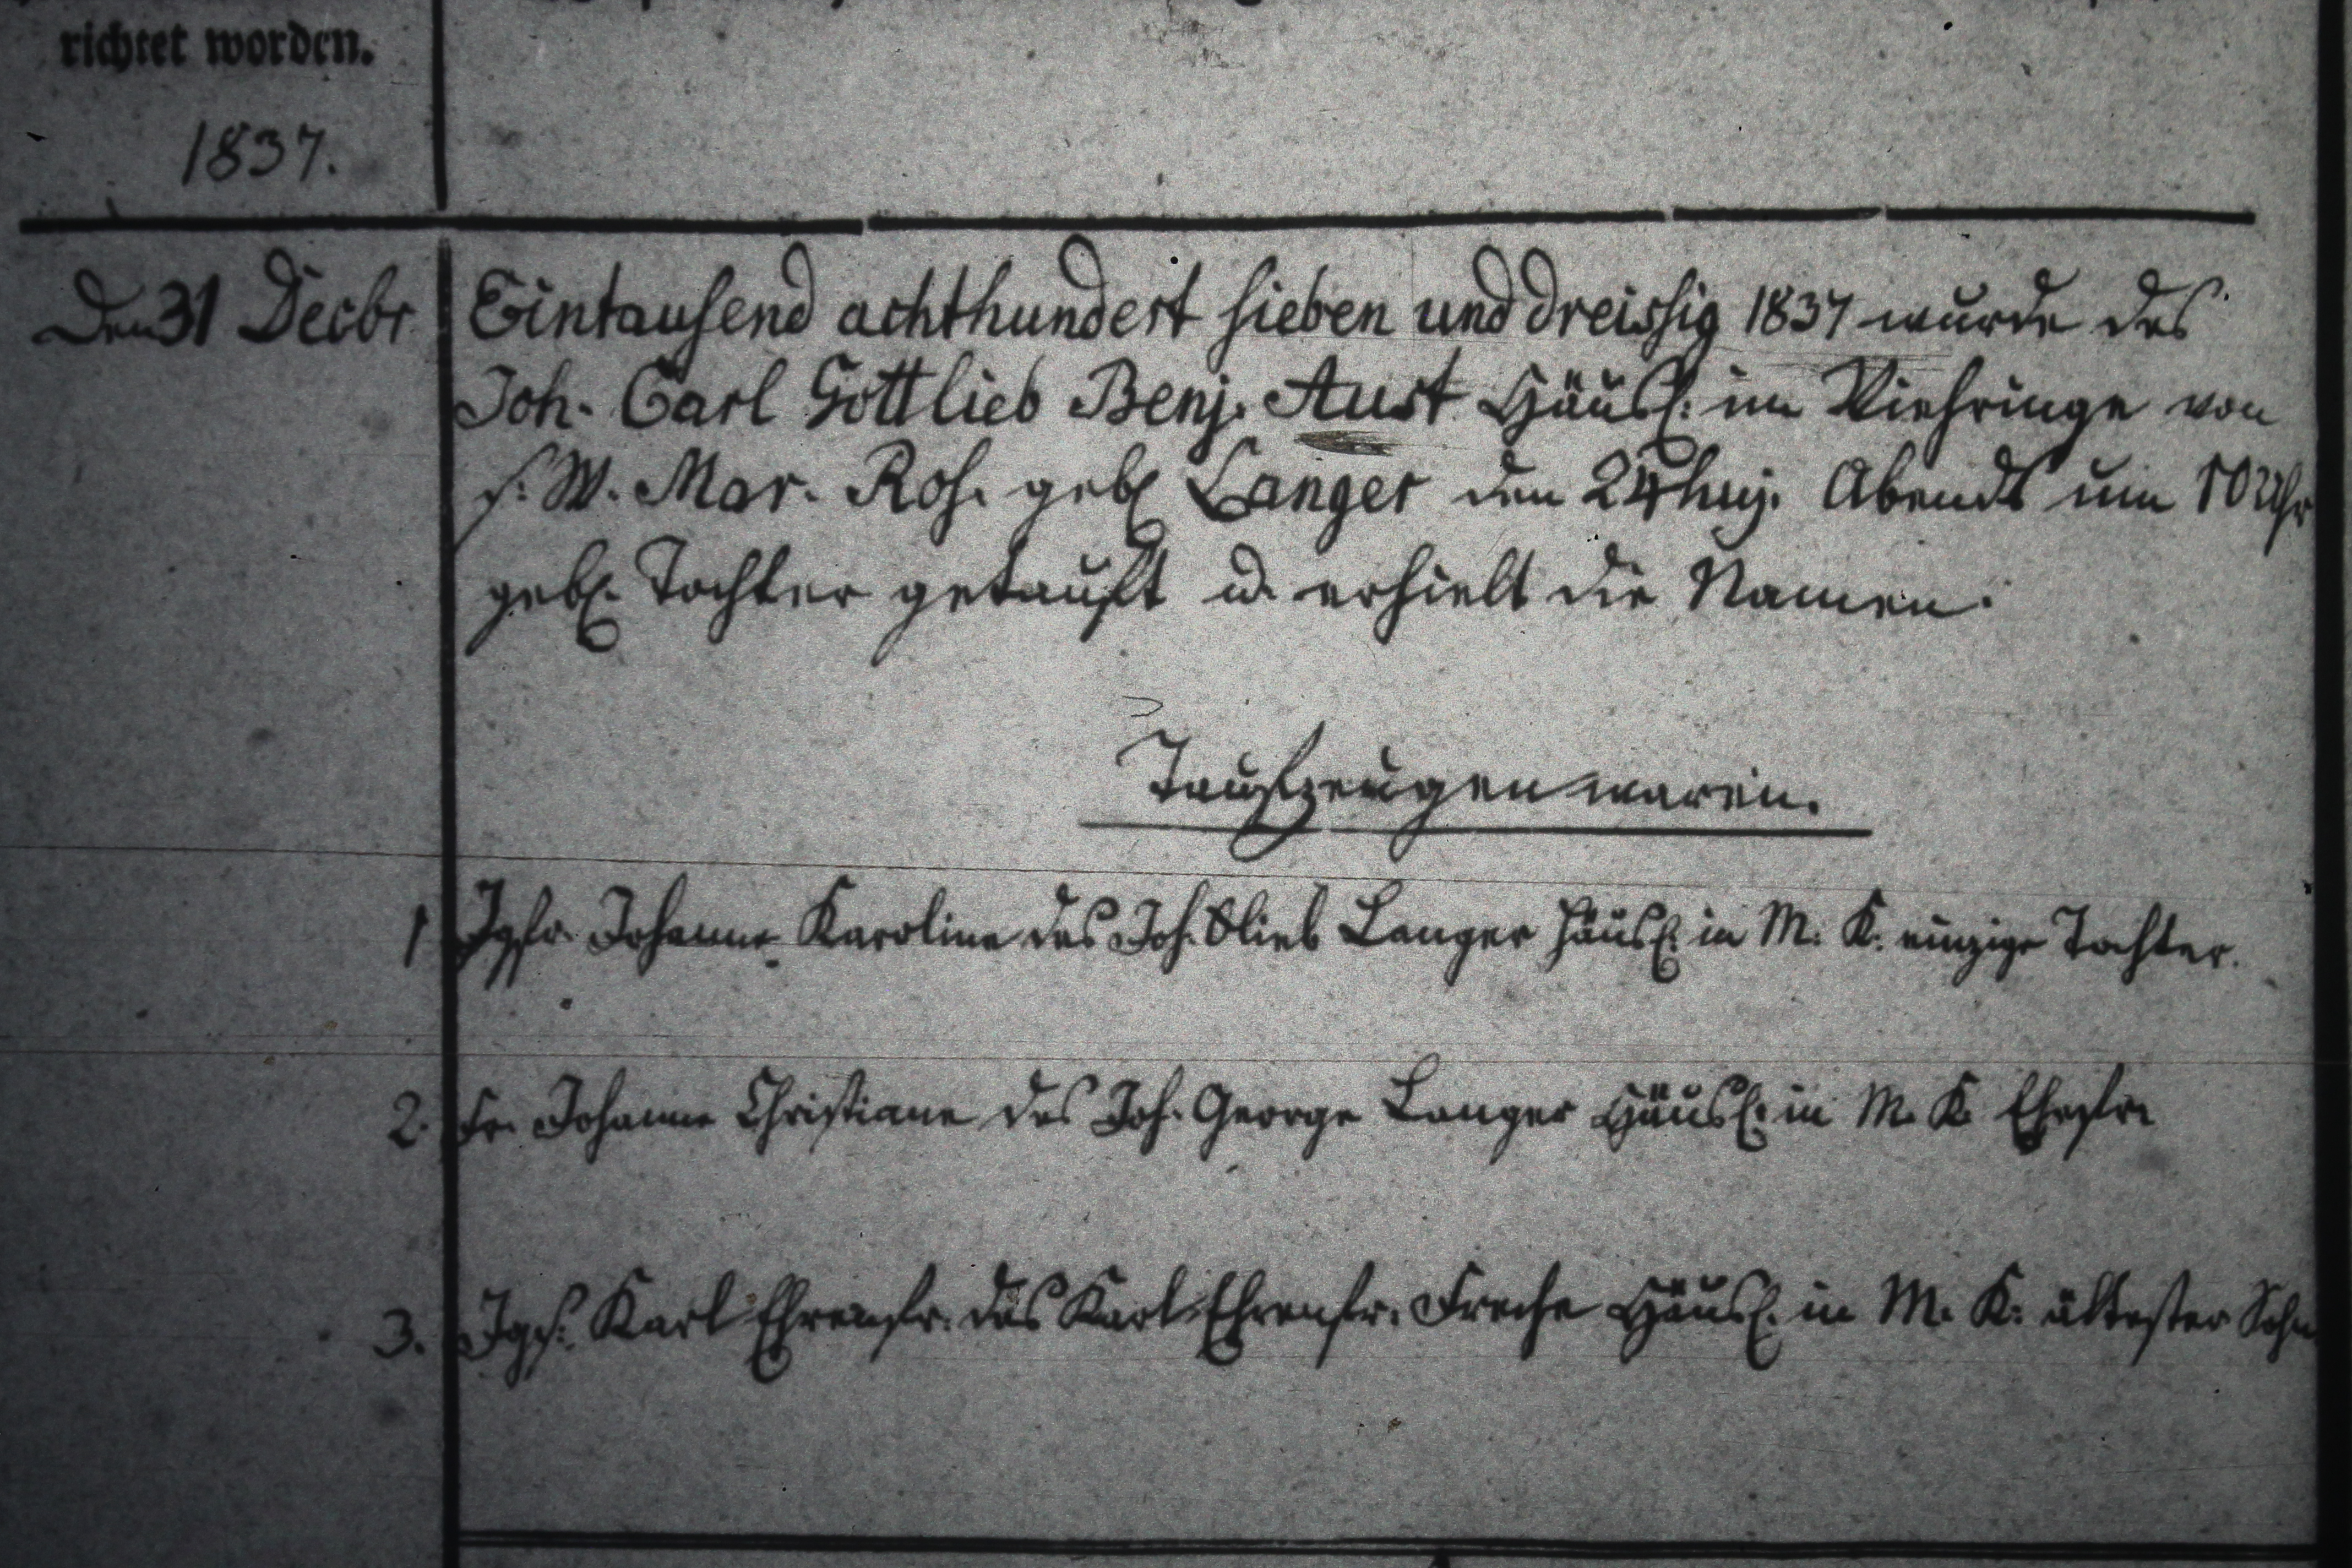 richtet worden.
1837.
Den 31 Decbr Eintausend achthundert sieben und dreissig 1837 wurde des
Joh. Carl Gottlieb Benj. Aust Häusl. im Viehringe von
s. W. Mar. Ros. geb. Langer den 24 huj. Abends um 10 Uhr
geb. Tochter getauft u. erhielt die Namen:
Taufzeugen waren.
1 Jgfr. Johanne Karoline des Joh. Glieb Langer Häusl. in M. K. einzige Tochter.
2. Fr. Johanne Christiane des Joh. George Langer Häusl. in M. K. Ehefr.
3. Jgs. Karl Ehrenfr. des Karl Ehrenfr. Freche Häusl. in M. K. ältester Sohn